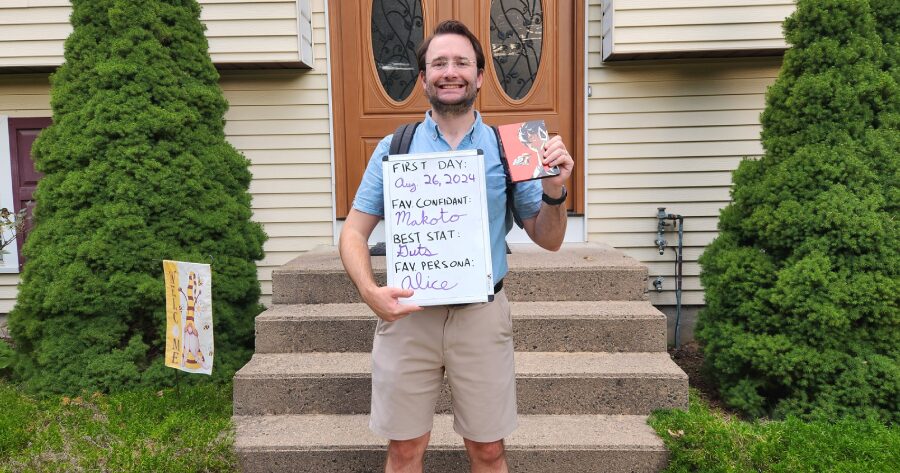 FIRST DAY:
Aug. 26, 2024
FAV CONFIDANT:
Makoto
BEST STAT:
Guts
FAV PERSONA:
Alice
WELCOME